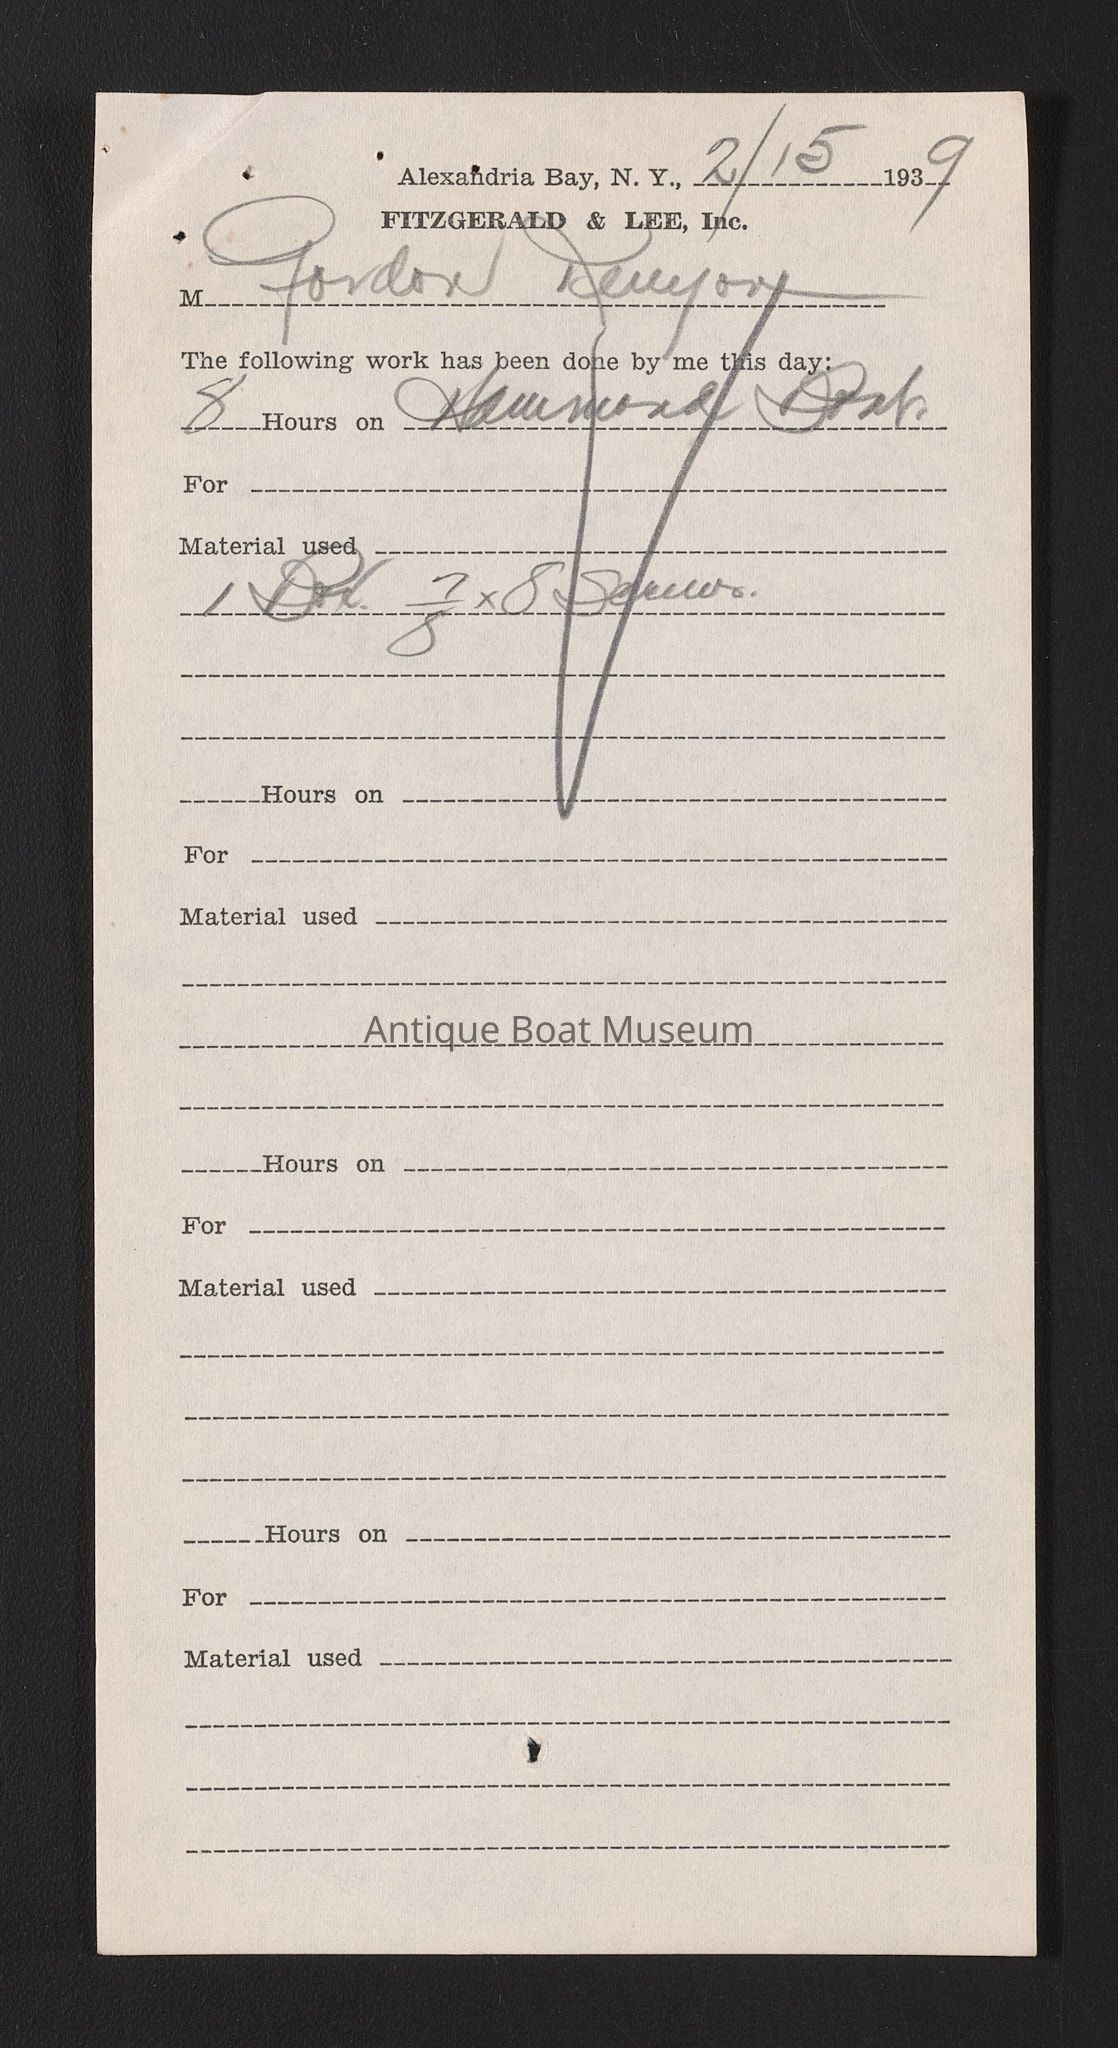 Alexandria Bay, N. Y., 2/15 1939
FITZGERALD & LEE, Inc.
M Gordon Kenyon
The following work has been done by me this day:
8 Hours on Hammond Boat.
For
Material used
1 Box 7/8 x 8 Screws.
Hours on
For
Material used
Antique Boat Museum
Hours on
For
Material used
Hours on
For
Material used